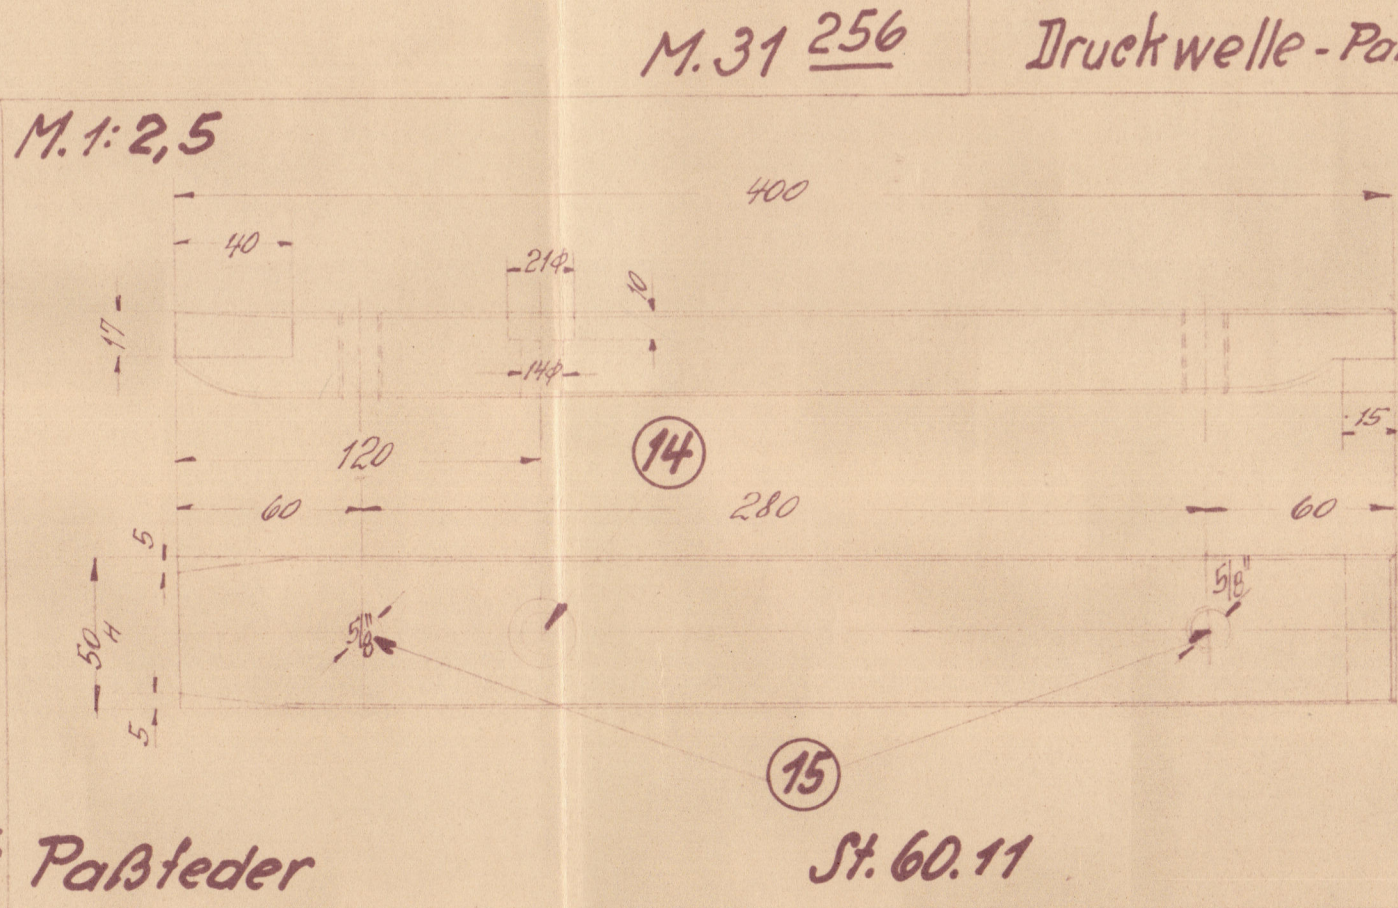 M. 31 256
Druckwelle - Pa
M. 1: 2,5
400
40
21ϕ
10
17
14ϕ
15
120
14
60
280
60
5
5/8"
5/8"
50 H
5
15
Paßfeder
St. 60.11